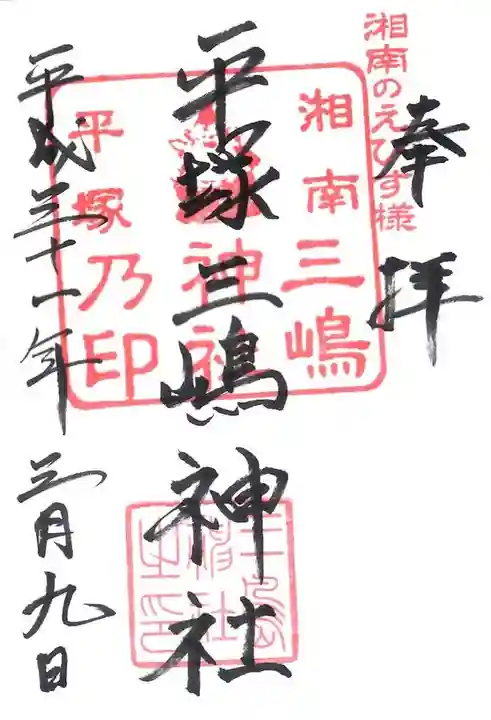 湘南のえびす様
奉拝
湘南三嶋
神社
平塚乃印
平塚三嶋神社
三嶋神社之印
平成三十一年三月九日